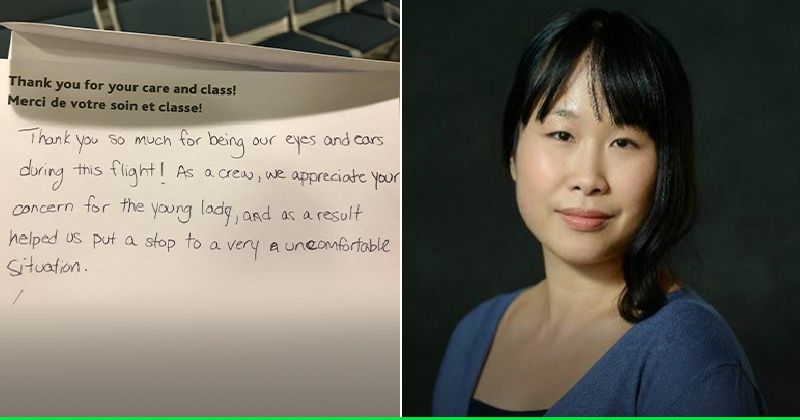 Thank you for your care and class!
Merci de votre soin et classe!
Thank you so much for being our eyes and ears
during this flight! As a crew, we appreciate your
concern for the young lady, and as a result
helped us put a stop to a very a uncomfortable
situation.